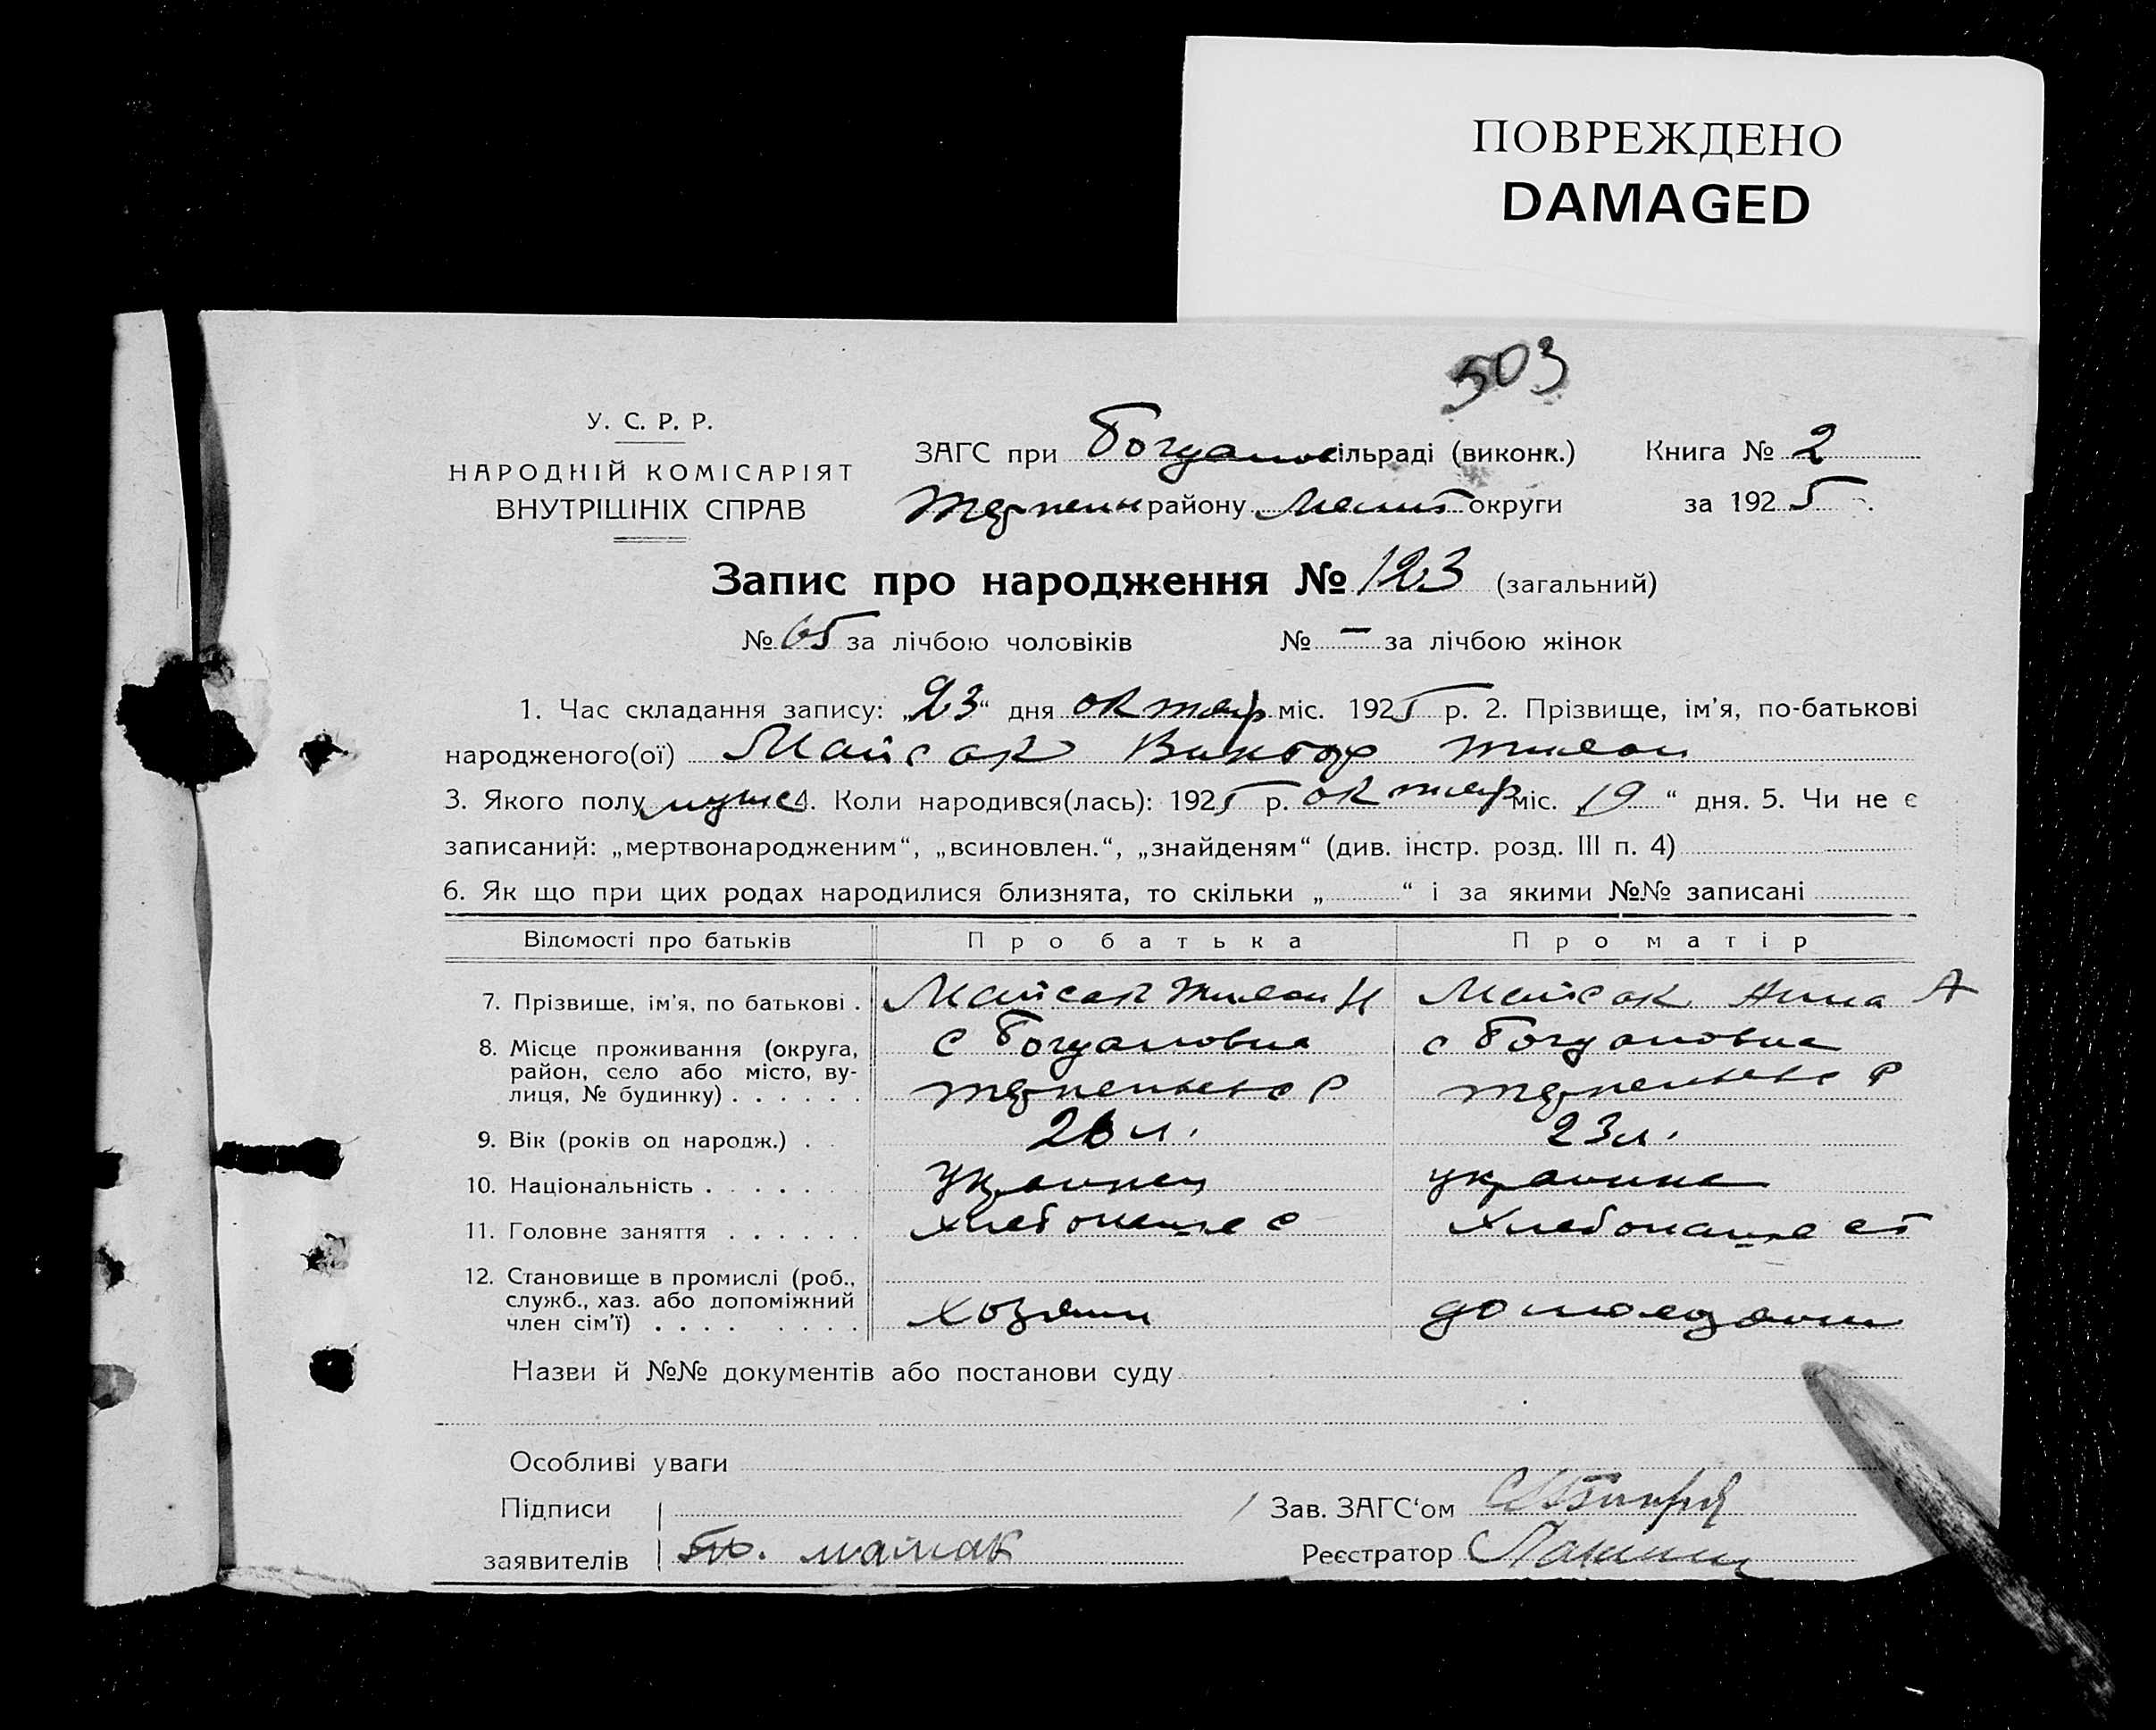 ПОВРЕЖДЕНО
DAMAGED
503
У. С. Р. Р.
НАРОДНІЙ КОМІСАРІЯТ
ВНУТРІШНІХ СПРАВ
ЗАГС при Богданов сільраді (виконк.) Книга № 2
Терпен району Мелит округи за 1925 р.
Запис про народження № 123 (загальний)
№ 65 за лічбою чоловіків № — за лічбою жінок
1. Час складання запису: „23“ дня октяр міс. 1925 р. 2. Прізвище, ім’я, по-батькові
народженого(ої) Майсак Виктор
3. Якого полу мужс 4. Коли народився(лась): 1925 р. октяр міс. 19 “ дня. 5. Чи не є
записаний: „мертвонародженим“, „всиновлен.“, „знайденям“ (див. інстр. розд. III п. 4)
6. Як що при цих родах народилися близнята, то скільки „ “ і за якими №№ записані
Відомості про батьків Про батька Про матір
7. Прізвище, ім’я, по батькові . Майсак Н Майсак Нина А
8. Місце проживання (округа, с Богдановка с Богдановка
район, село або місто, ву-
лиця, № будинку) . . . . . . Терпеньевс Р Терпеньевс Р
9. Вік (років од народж.) . 26 л. 23 л.
10. Національність . . . . . Украинец украинка
11. Головне заняття . . . . . . хлебопашес Хлебопашест
12. Становище в промислі (роб.,
служб., хаз. або допоміжний
член сім’ї) . . . . . . . . хозяин
Назви й №№ документів або постанови суду
Особливі уваги
Підписи Зав. ЗАГС‘ом
заявителів майсак Реєстратор